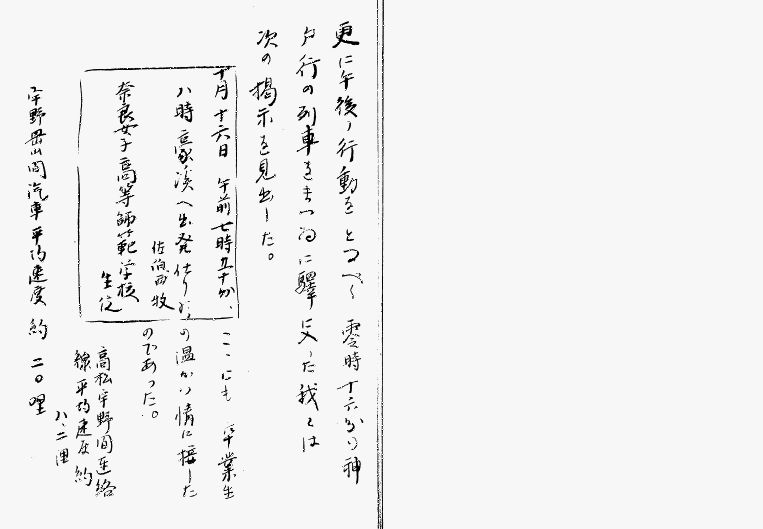 更に午後ノ行動をとつべく 零時十六分の神
戸行の列車をまつ為に驛に入った我々は
次の掲示を見出した。
十月十六日 午前七時五十分、
八時豪渓へ出発仕り
佐伯 牧
奈良女子高等師範学校
生徒
ここにも卒業生
の温かい情に接した
のであった。
高松宇野間連絡
線平均速度 約
八、二浬
宇野岡山間汽車平均速度 約 二〇哩